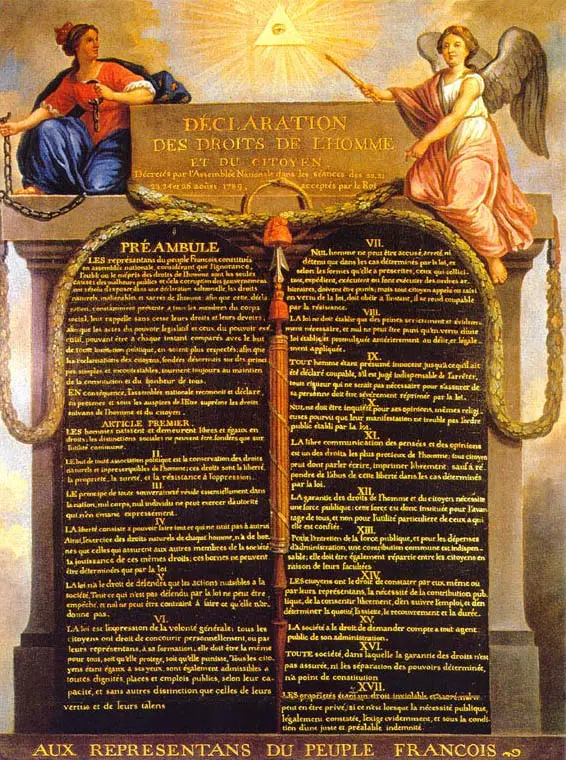 DÉCLARATION
DES DROITS DE L'HOMME
ET DU CITOYEN
Décretés par l'Assemblée Nationale dans les séances des 20, 21
23, 24 et 26 août 1789, acceptés par le Roi
PRÉAMBULE
LES représentans du peuple François, constitués
en assemblée nationale, considérant que l'ignorance,
l'oubli ou le mépris des droits de l'homme sont les seules
causes des malheurs publics et de la corruption des gouvernemens
ont résolu d'exposer dans une déclaration solemnelle, les droits
naturels, inaliénables et sacrés de l'homme; afin que cette décla
ration, constamment présente à tous les membres du corps
social, leur rappelle sans cesse leurs droits et leurs devoirs;
afin que les actes du pouvoir legislatif et ceux du pouvoir ex
cutif, pouvant être à chaque instant comparés avec le but
de toute institution politique, en soient plus respectés; afin que
les réclamations des citoyens, fondées désormais sur des prin
pes simples et incontestables, tournent toujours au maintien
de la constitution et du bonheur de tous.
EN conséquence, l'assemblée nationale reconnoit et déclare,
en présence et sous les auspices de l'Etre suprême les droits
suivans de l'homme et du citoyen.
ARTICLE PREMIER.
LES hommes naissent et demeurent libres et égaux en
droits; les distinctions sociales ne peuvent être fondées que sur
l'utilité commune.
II.
LE but de toute association politique est la conservation des droits
naturels et imprescriptibles de l'homme; ces droits sont la liberté,
la propriété, la sureté, et la résistance à l'oppression.
III.
LE principe de toute souveraineté réside essentiellement dans
la nation, nul corps, nul individu ne peut exercer d'autorité
qui n'en émane expressément.
IV.
LA liberté consiste à pouvoir faire tout ce qui ne nuit pas à autrui
Ainsi, l'exercice des droits naturels de chaque homme, n'a de bor
nes que celles qui assurent aux autres membres de la société
la jouissance de ces mêmes droits; ces bornes ne peuvent
être déterminées que par la loi
V.
LA loi n'a le droit de défendre que les actions nuisibles à la
société. Tout ce qui n'est pas défendu par la loi ne peut être
empêché, et nul ne peut être contraint à faire ce qu'elle n'or
donne pas.
VI.
LA loi est l'expression de la volonté générale; tous les
citoyens ont droit de concourir personnellement, ou par
leurs représentans, à sa formation; elle doit être la même
pour tous, soit qu'elle protege, soit qu'elle punisse, Tous les cito
yens étans égaux à ses yeux, sont également admissibles à
toutes dignités, places et emplois publics, selon leur ca
pacité, et sans autres distinction que celles de leurs
vertus et de leurs talens
VII.
NUL homme ne peut être accusé, arreté, ni
détenu que dans les cas déterminés par la loi, et
selon les formes qu'elle a prescrites, ceux qui sollici
tent, expédient, exécutent ou font exécuter des ordres ar
bitraires, doivent être punis; mais tout citoyen appelé ou saisi
en vertu de la loi, doit obéir à l'instant, il se rend coupable
par la résistance.
VIII.
LA loi ne doit établir que des peines strictement et évidem
ment nécessaire, et nul ne peut être puni qu'en vertu d'une
loi établie et promulguée antérierement au délit, et légale
ment appliquée.
IX.
TOUT homme étant présumé innocent jusqu'à ce qu'il ait
été déclaré coupable, s'il est jugé indispensable de l'arrêter,
toute rigueur qui ne serait pas nécessaire pour s'assurer de
sa personne doit être sévèrement réprimée par la loi.
X.
NUL ne doit être inquiété pour ses opinions, mêmes religi
euses pourvu que leur manifestation ne trouble pas l'ordre
public établi par la loi.
XI.
LA libre communication des pensées et des opinions
est un des droits les plus precieux de l'homme; tout citoyen
peut donc parler écrire, imprimer librement; sauf à ré
pondre de l'abus de cette liberté dans les cas déterminés
par la loi.
XII.
LA garantie des droits de l'homme et du citoyen nécessite
une force publique; cette force est donc instituée pour l'avan
tage de tous, et non pour l'utilité particuliere de ceux a qui
elle est confiée.
XIII.
POUR l'entretien de la force publique, et pour les dépenses
d'administration, une contribution commune est indispen
sable; elle doit être également répartie entre les citoyens en
raison de leurs facultées
XIV.
LES citoyens ont le droit de constater par eux même ou
par leurs représentans, la nécessité de la contribution pub
lique, de la consentir librement, d'en suivre l'emploi, et d'en
déterminer la quotité, l'assiette, le recouvrement et la durée.
XV.
LA société a le droit de demander compte a tout agent
public de son administration.
XVI.
TOUTE société, dans laquelle la garantie des droits n'est
pas assurée, ni les séparation des pouvoirs déterminée,
n'a point de constitution
XVII.
LES propriétés étant un droit inviolable et sacré, nul ne
peut en être privé, si ce n'est lorsque la nécessité publique,
légalement constatée, l'exige évidemment, et sous la condi
tion d'une juste et préalable indemnité.
AUX REPRESENTANS DU PEUPLE FRANCOIS